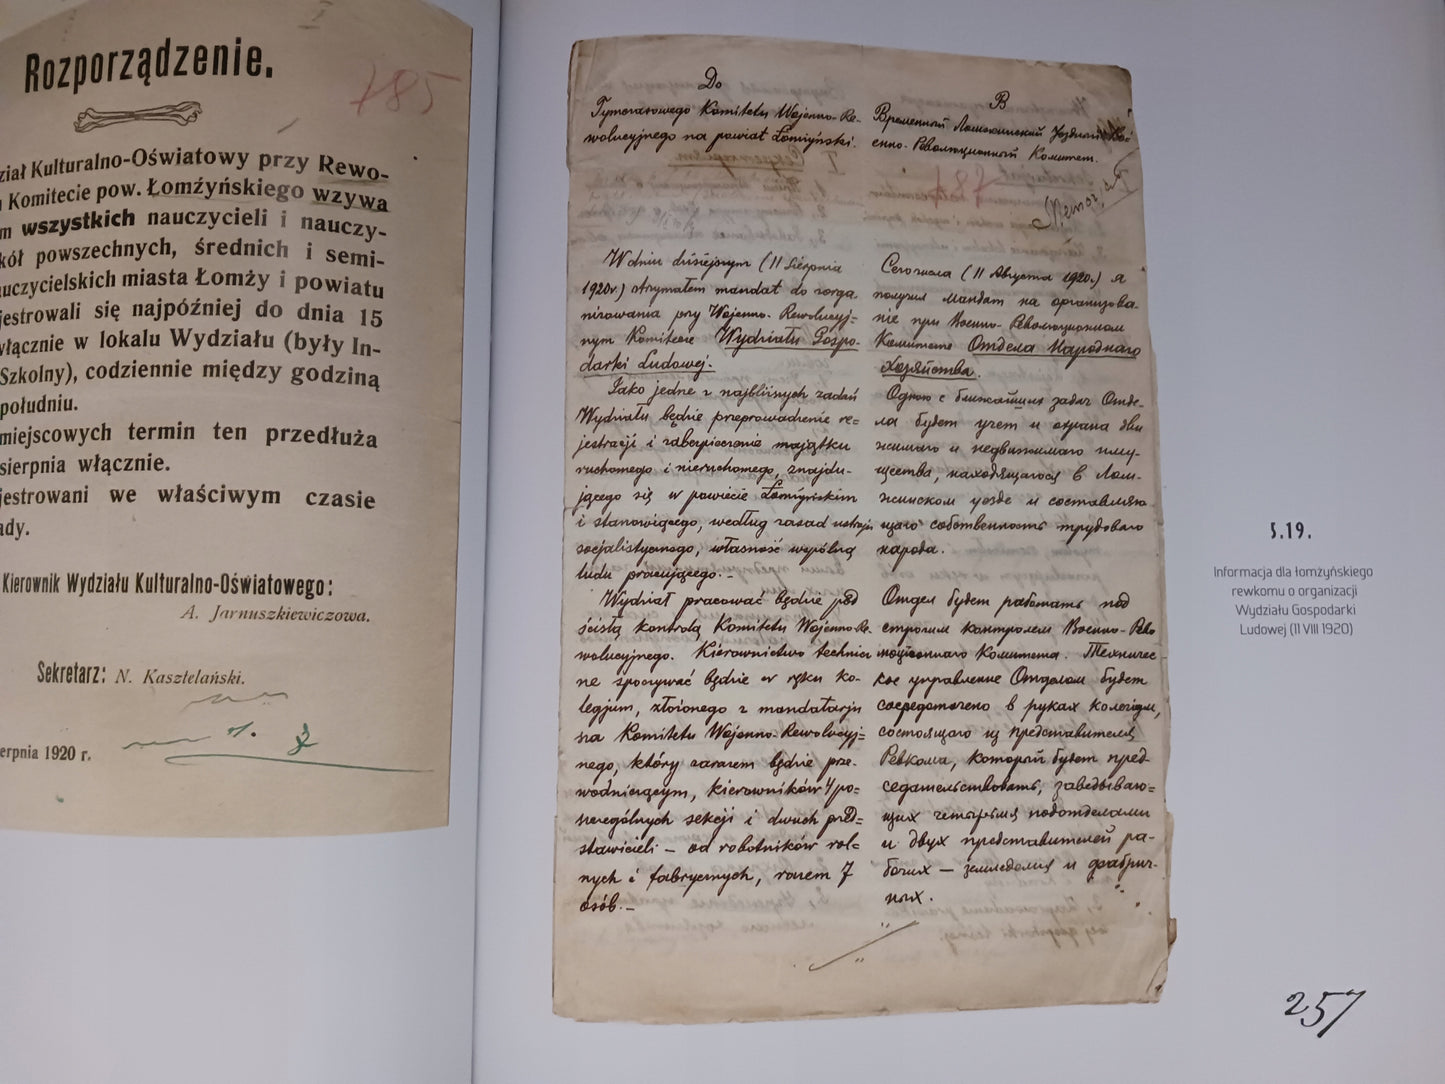 Rozporządzenie.
185
ział Kulturalno-Oświatowy przy Rewo-
Komitecie pow. Łomżyńskiego wzywa
m wszystkich nauczycieli i nauczy-
kół powszechnych, średnich i semi-
uczycielskich miasta Łomży i powiatu
jestrowali się najpóźniej do dnia 15
włącznie w lokalu Wydziału (były In-
Szkolny), codziennie między godziną
południu.
miejscowych termin ten przedłuża
sierpnia włącznie.
jestrowani we właściwym czasie
ady.
Kierownik Wydziału Kulturalno-Oświatowego:
A. Jarnuszkiewiczowa.
Sekretarz: N. Kasztelański.
erpnia 1920 r.
Do
Tymczasowego Komitetu Wojenno-Re-
wolucyjnego na powiat Łomżyński.
W dniu dzisiejszym (11 Sierpnia
1920r.) otrzymałem mandat do zorga-
nizowania przy Wojenno-Rewolucyj-
nym Komitecie Wydziału Gospo-
darki Ludowej.
Jako jedne z najbliższych zadań
Wydziału będzie przeprowadzenie re-
jestracji i zabezpieczenie majątku
ruchomego i nieruchomego, znajdu-
jącego się w powiecie Łomżyńskim
i stanowiącego, według zasad ustroju
socjalistycznego, własność wspólną
ludu pracującego.-
Wydział pracować będzie pod
ścisłą kontrolą Komitetu Wojenno-Re-
wolucyjnego. Kierownictwo technicz-
ne spoczywać będzie w ręku ko-
legjum, złożonego z mandatarju-
sza Komitetu Wojenno-Rewolucyj-
nego, który zarazem będzie prze-
wodniczącym, kierowników 4 po-
szczególnych sekcji i dwuch przed-
stawicieli – od robotników rol-
nych i fabrycznych, razem 7
osób.-
В
Временный Ломжинский Уездный Во-
енно-Революционный Комитет.
187
Сего числа (11 Августа 1920.) я
получил мандат на организова-
ние при Военно-Революционном
Комитете Отдела Народнаго
Хозяйства.
Одною с ближайших задач Отде-
ла будет учет и охрана дви
жимаго и недвижимаго иму-
щества, находящагося в Лом-
жинском уезде и составляю-
щаго собственность трудоваго
народа.
Отдел будет работать под
строгим контролем Военно-Рево
люционнаго Комитета. Техничес-
кое управление Отделом будет
сосредоточено в руках колегии,
состоящаго из представителя
Ревкома, который будет пред-
седательствовать, заведываю-
щих четырьмя подотделами
и двух представителей ра-
бочих – земледелия и фабрич-
ных.
5.19.
Informacja dla łomżyńskiego
rewkomu o organizacji
Wydziału Gospodarki
Ludowej (11 VIII 1920)
257